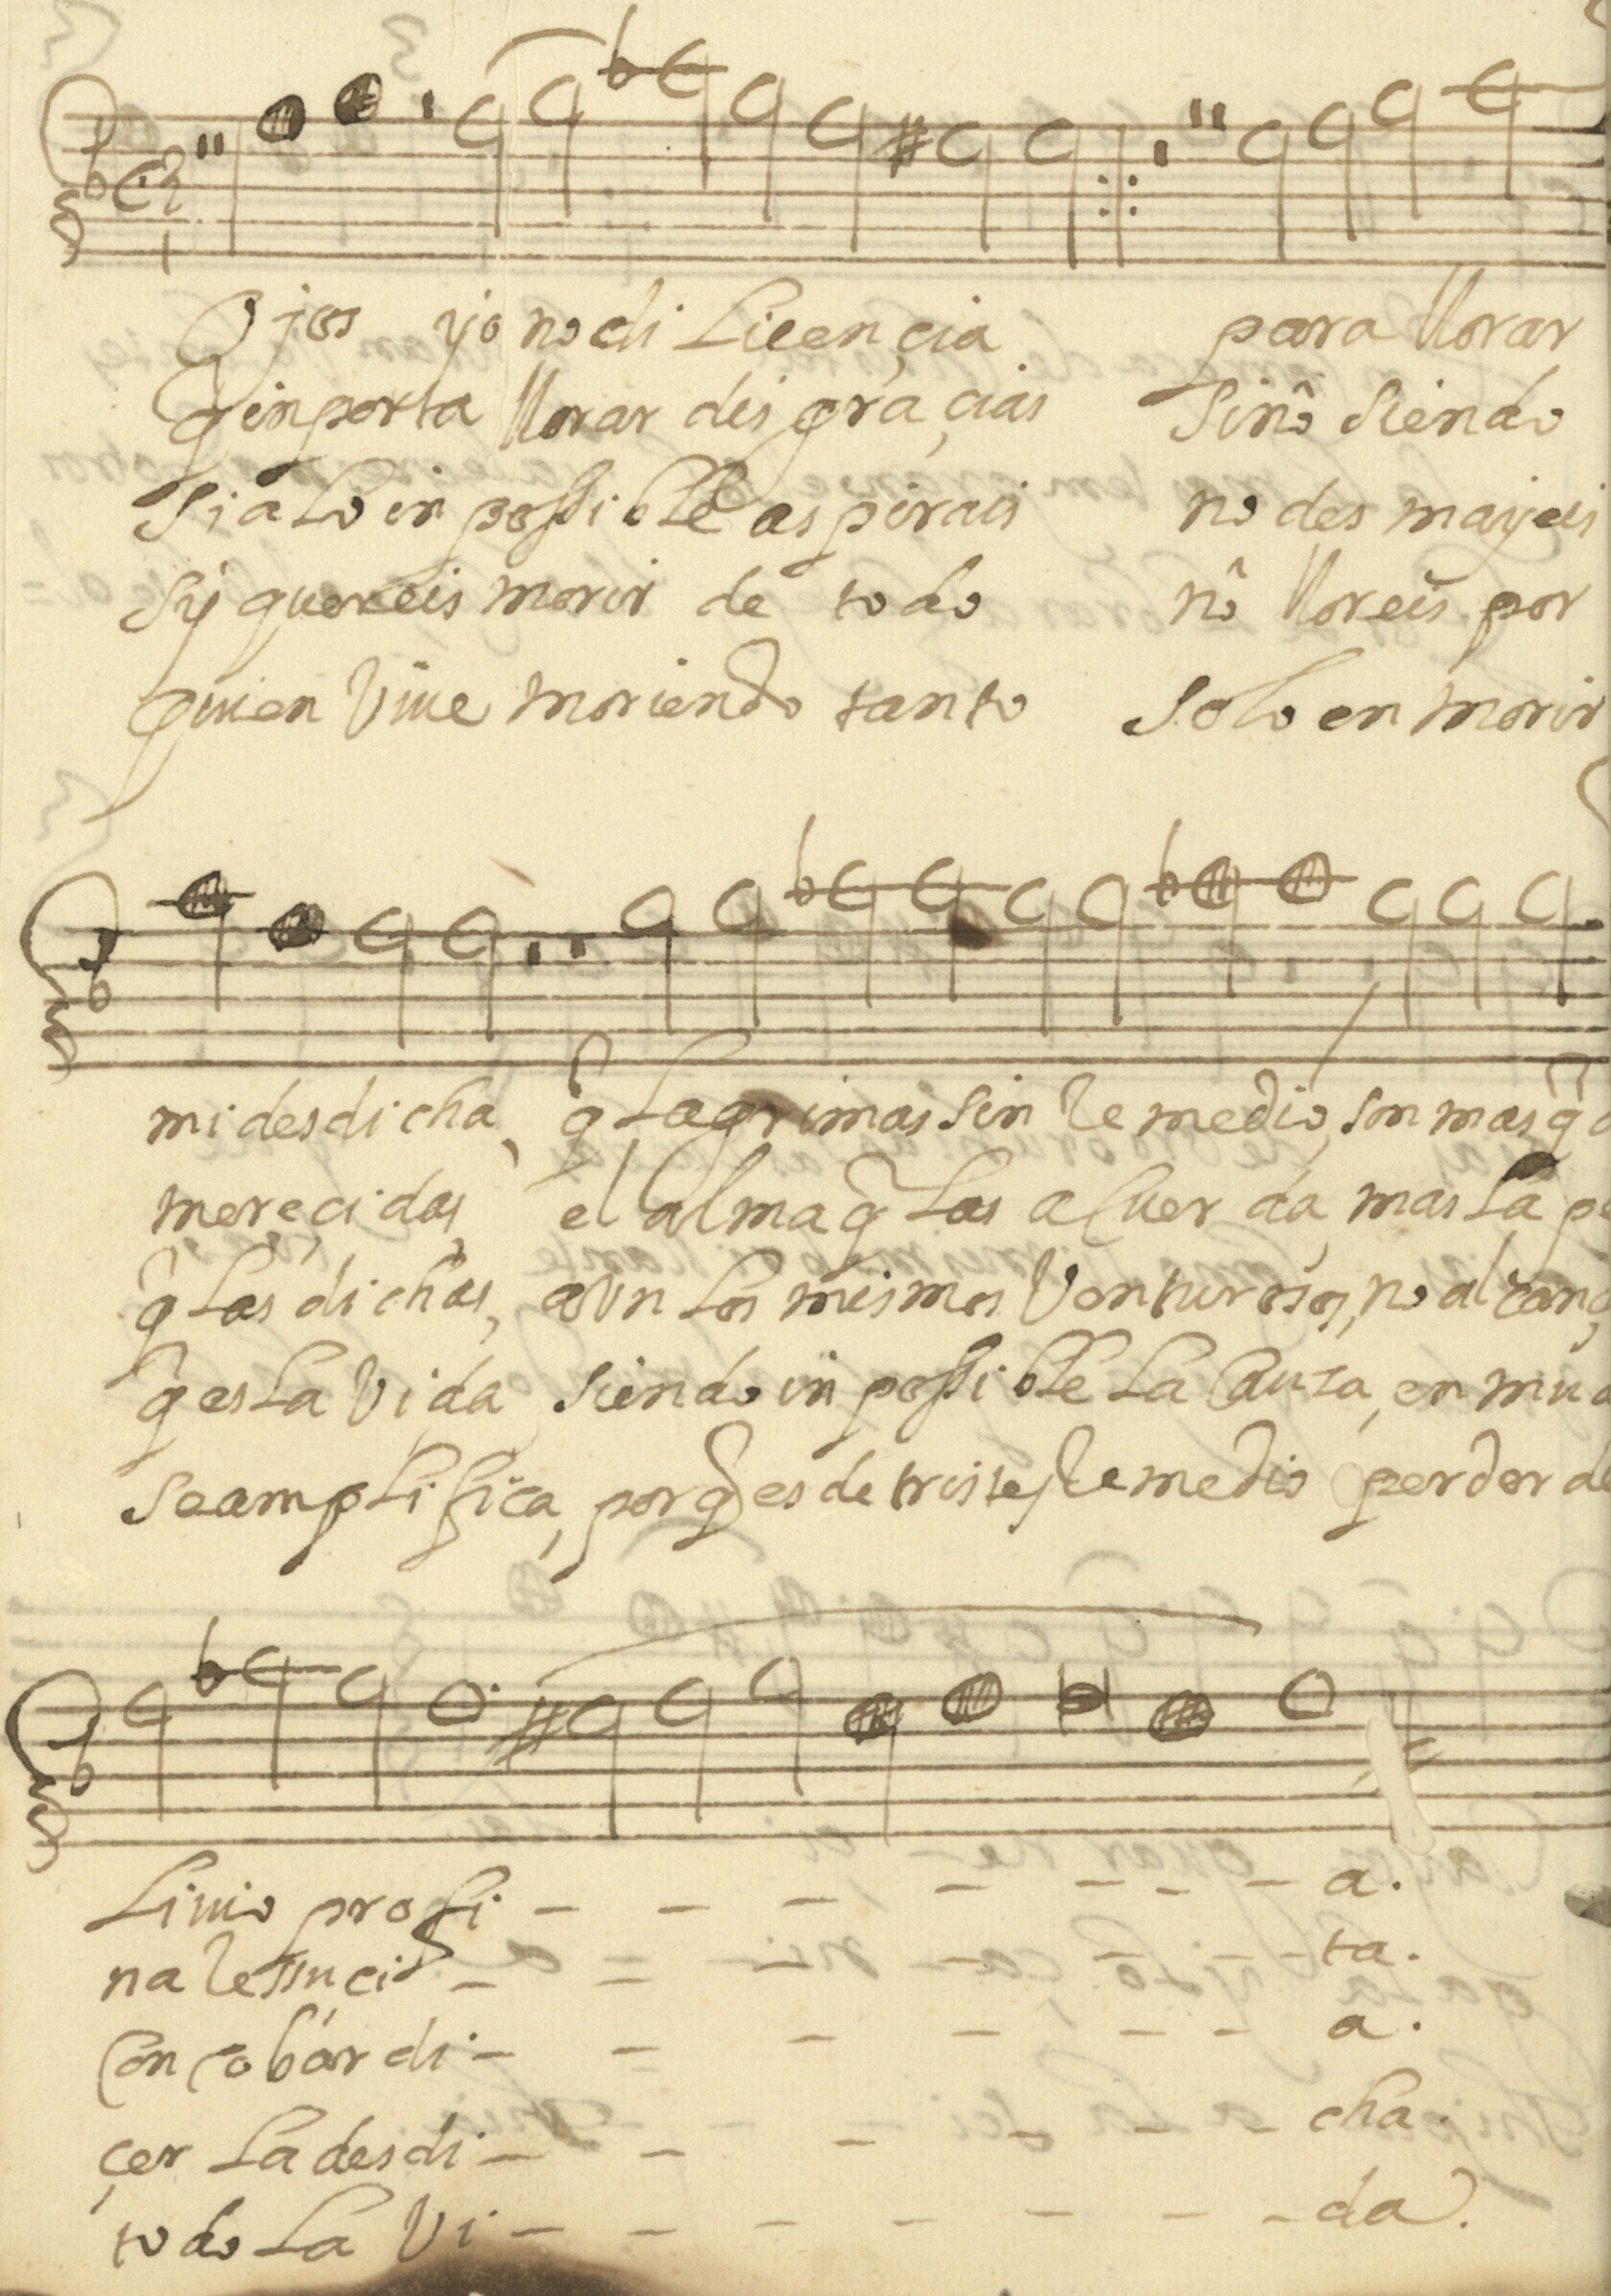 Ojos yo no di Liçençia para llorar
q̃ inporta llorar desgraçias Sinô Siendo
Si a Lo inpossible aspirais no desmayeis
Sy quereis morir de todo nô lloreis por
quien Viue moriendo tanto Solo en morir
mi desdicha, q̃ Lagrimas Sin Remedio, son mas q̃
mereçidas, el alma q̃ Las acuerda, mas La
q̃ Las dichas, aun Los mismos Venturosos, no alcanç
q̃ es La Vida Siendo inpossible La Cauza, en
Se amplifica, porq̃ es de tristes Remedio perder de
Liuio profi - - - - - - - a.
na Ressuci - - - - - - - ta.
Con cobardi - - - - - - a.
çer La desdi - - - - - - cha.
todo La Vi - - - - - - - da.